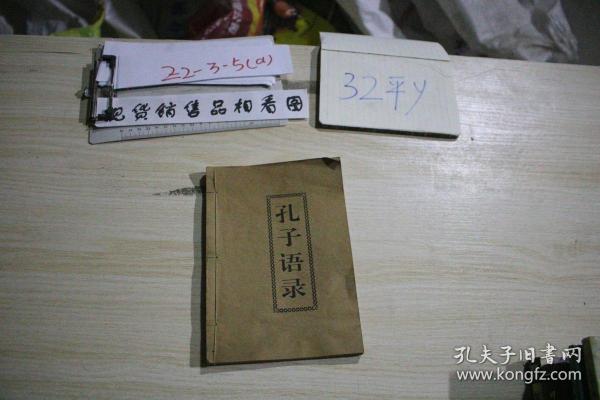 22-3-5(a)
现货销售品相看图
32平y
孔子语录
孔夫子旧书网
www.kongfz.com